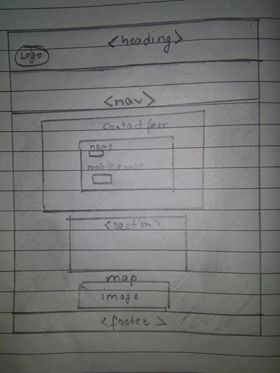 <heading>
Logo
<nav>
Contact form
name
<section>
map
image
<footer>